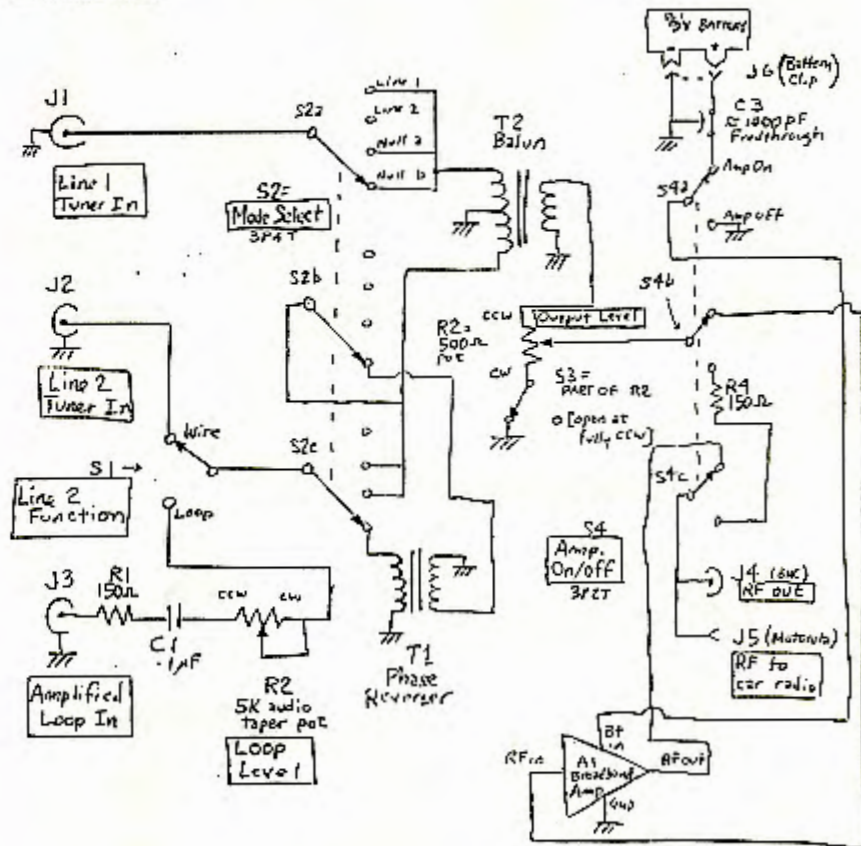 9V BATTERY
J6 (Battery
Clip)
C3
≈ 1000 pF
Feedthrough
Amp On
S4a
Amp off
J1
Line 1
Tuner In
S2a
Line 1
Line 2
Null a
Null b
S2=
Mode Select
3P4T
T2
Balun
J2
Line 2
Tuner In
S2b
S4b
CCW
Output Level
R2=
500Ω
pot
CW
S3=
PART OF R2
[open at
fully CCW]
R4
150Ω
Wire
S1→
Line 2
Function
Loop
S2c
S4c
S4
Amp.
On/off
3P2T
J4 (BNC)
RF OUT
J5 (Motorola)
RF to
car radio
J3
R1
150Ω
C1
.1µF
CCW
CW
R2
5K audio
taper pot
Loop
Level
Amplified
Loop In
T1
Phase
Reverser
B+
in
RF in
A1
Broadband
Amp
RF out
Gnd